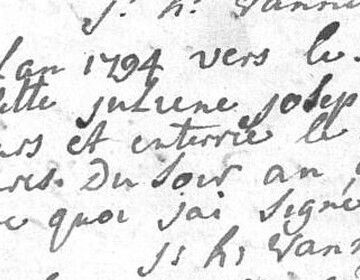 J: h: Vann
Lan 1794 vers le
lette juliene josep
urs et enterrée le
res. Du soir an
e quoi jai signe
J: h: Vann